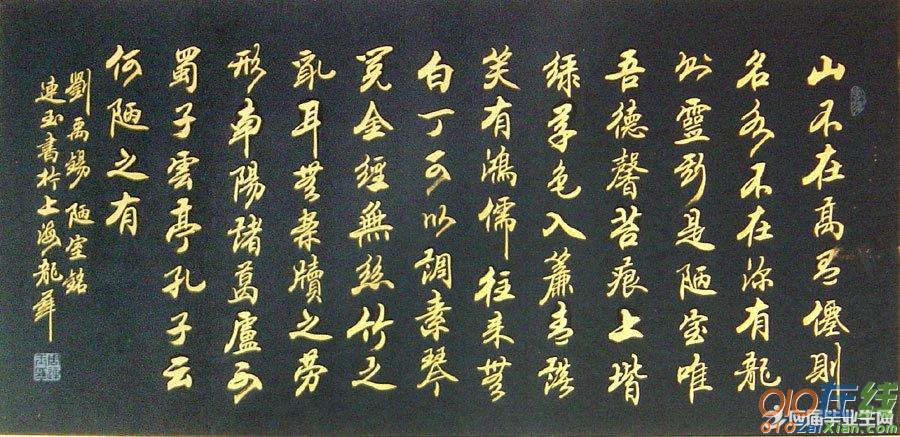 山不在高有僊則
名水不在深有龍
則靈斯是陋室唯
吾德馨苔痕上堦
緑草色入簾青談
笑有鴻儒往来無
白丁可以調素琴
閲金經無絲竹之
亂耳無案牘之勞
形南陽諸葛廬西
蜀子雲亭孔子云
何陋之有
劉禹錫 陋室銘
連玉書於上海龍華
010在线
应届毕业生网
010zaixian.com